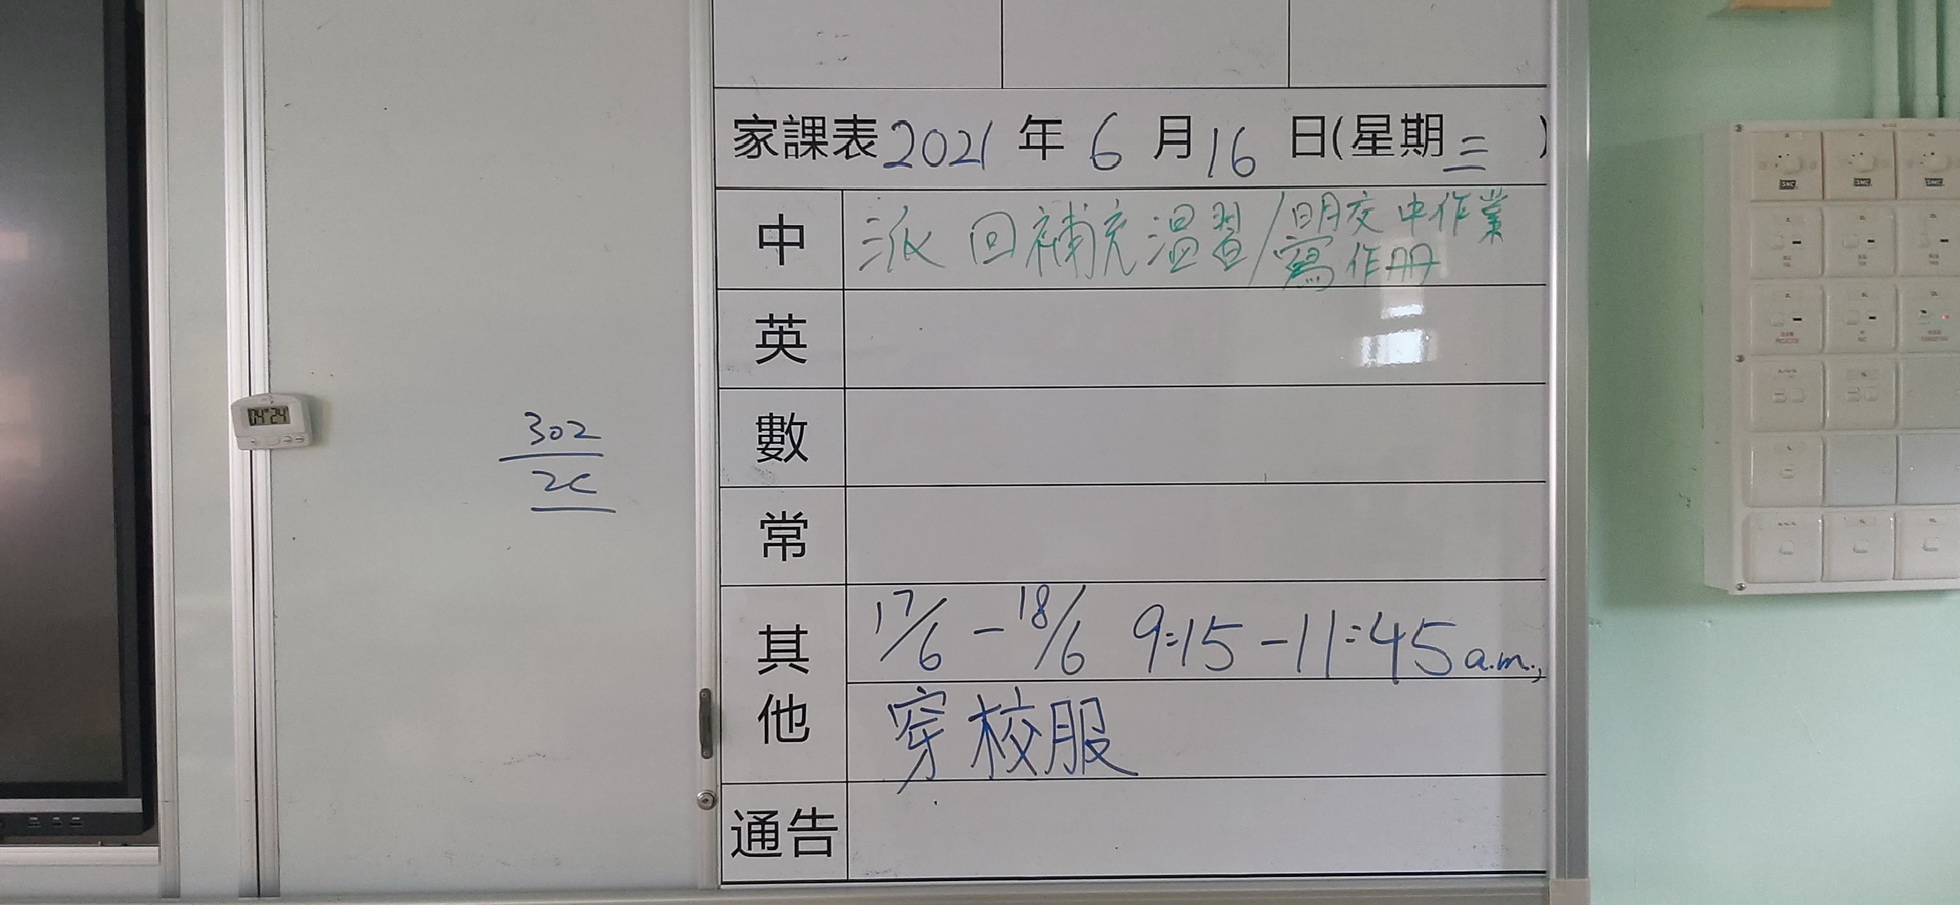 家課表 2021 年 6 月 16 日(星期三)
中 派回補充溫習/明交中作業
寫作冊
英
數
常
其他 17/6 - 18/6 9:15 - 11:45 a.m.,
穿校服
通告
04 24
302
2C